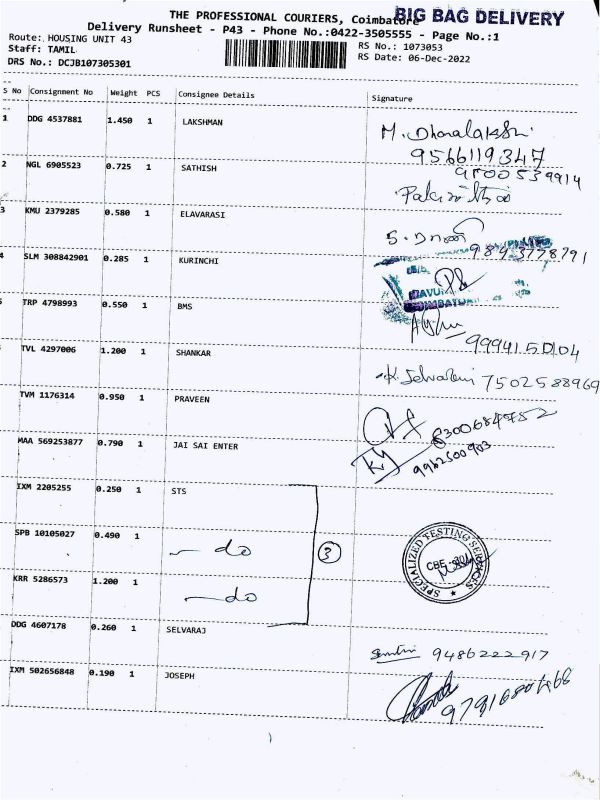 THE PROFESSIONAL COURIERS, Coimbatore
BIG BAG DELIVERY
Delivery Runsheet - P43 - Phone No.:0422-3505555 - Page No.:1
Route: HOUSING UNIT 43
RS No.: 1073053
Staff: TAMIL
RS Date: 06-Dec-2022
DRS No.: DCJB107305301
S No Consignment No Weight PCS Consignee Details Signature
1 DDG 4537881 1.450 1 LAKSHMAN
M. Dhanalakshmi
9566119347
2 NGL 6905523 0.725 1 SATHISH
9500539914
3 KMU 2379285 0.580 1 ELAVARASI
9843778791
4 SLM 308842901 0.285 1 KURINCHI
5 TRP 4798993 0.550 1 BMS
9994150104
TVL 4297006 1.200 1 SHANKAR
K. Selvarani 7502588969
TVM 1176314 0.950 1 PRAVEEN
8300684752
MAA 569253877 0.790 1 JAI SAI ENTER
9962500903
IXM 2205255 0.250 1 STS
SPB 10105027 0.490 1 — do
3
SPECIALIZED TESTING SERVICES
KRR 5286573 1.200 1 — do
DDG 4607178 0.260 1 SELVARAJ
9486222917
IXM 502656848 0.190 1 JOSEPH